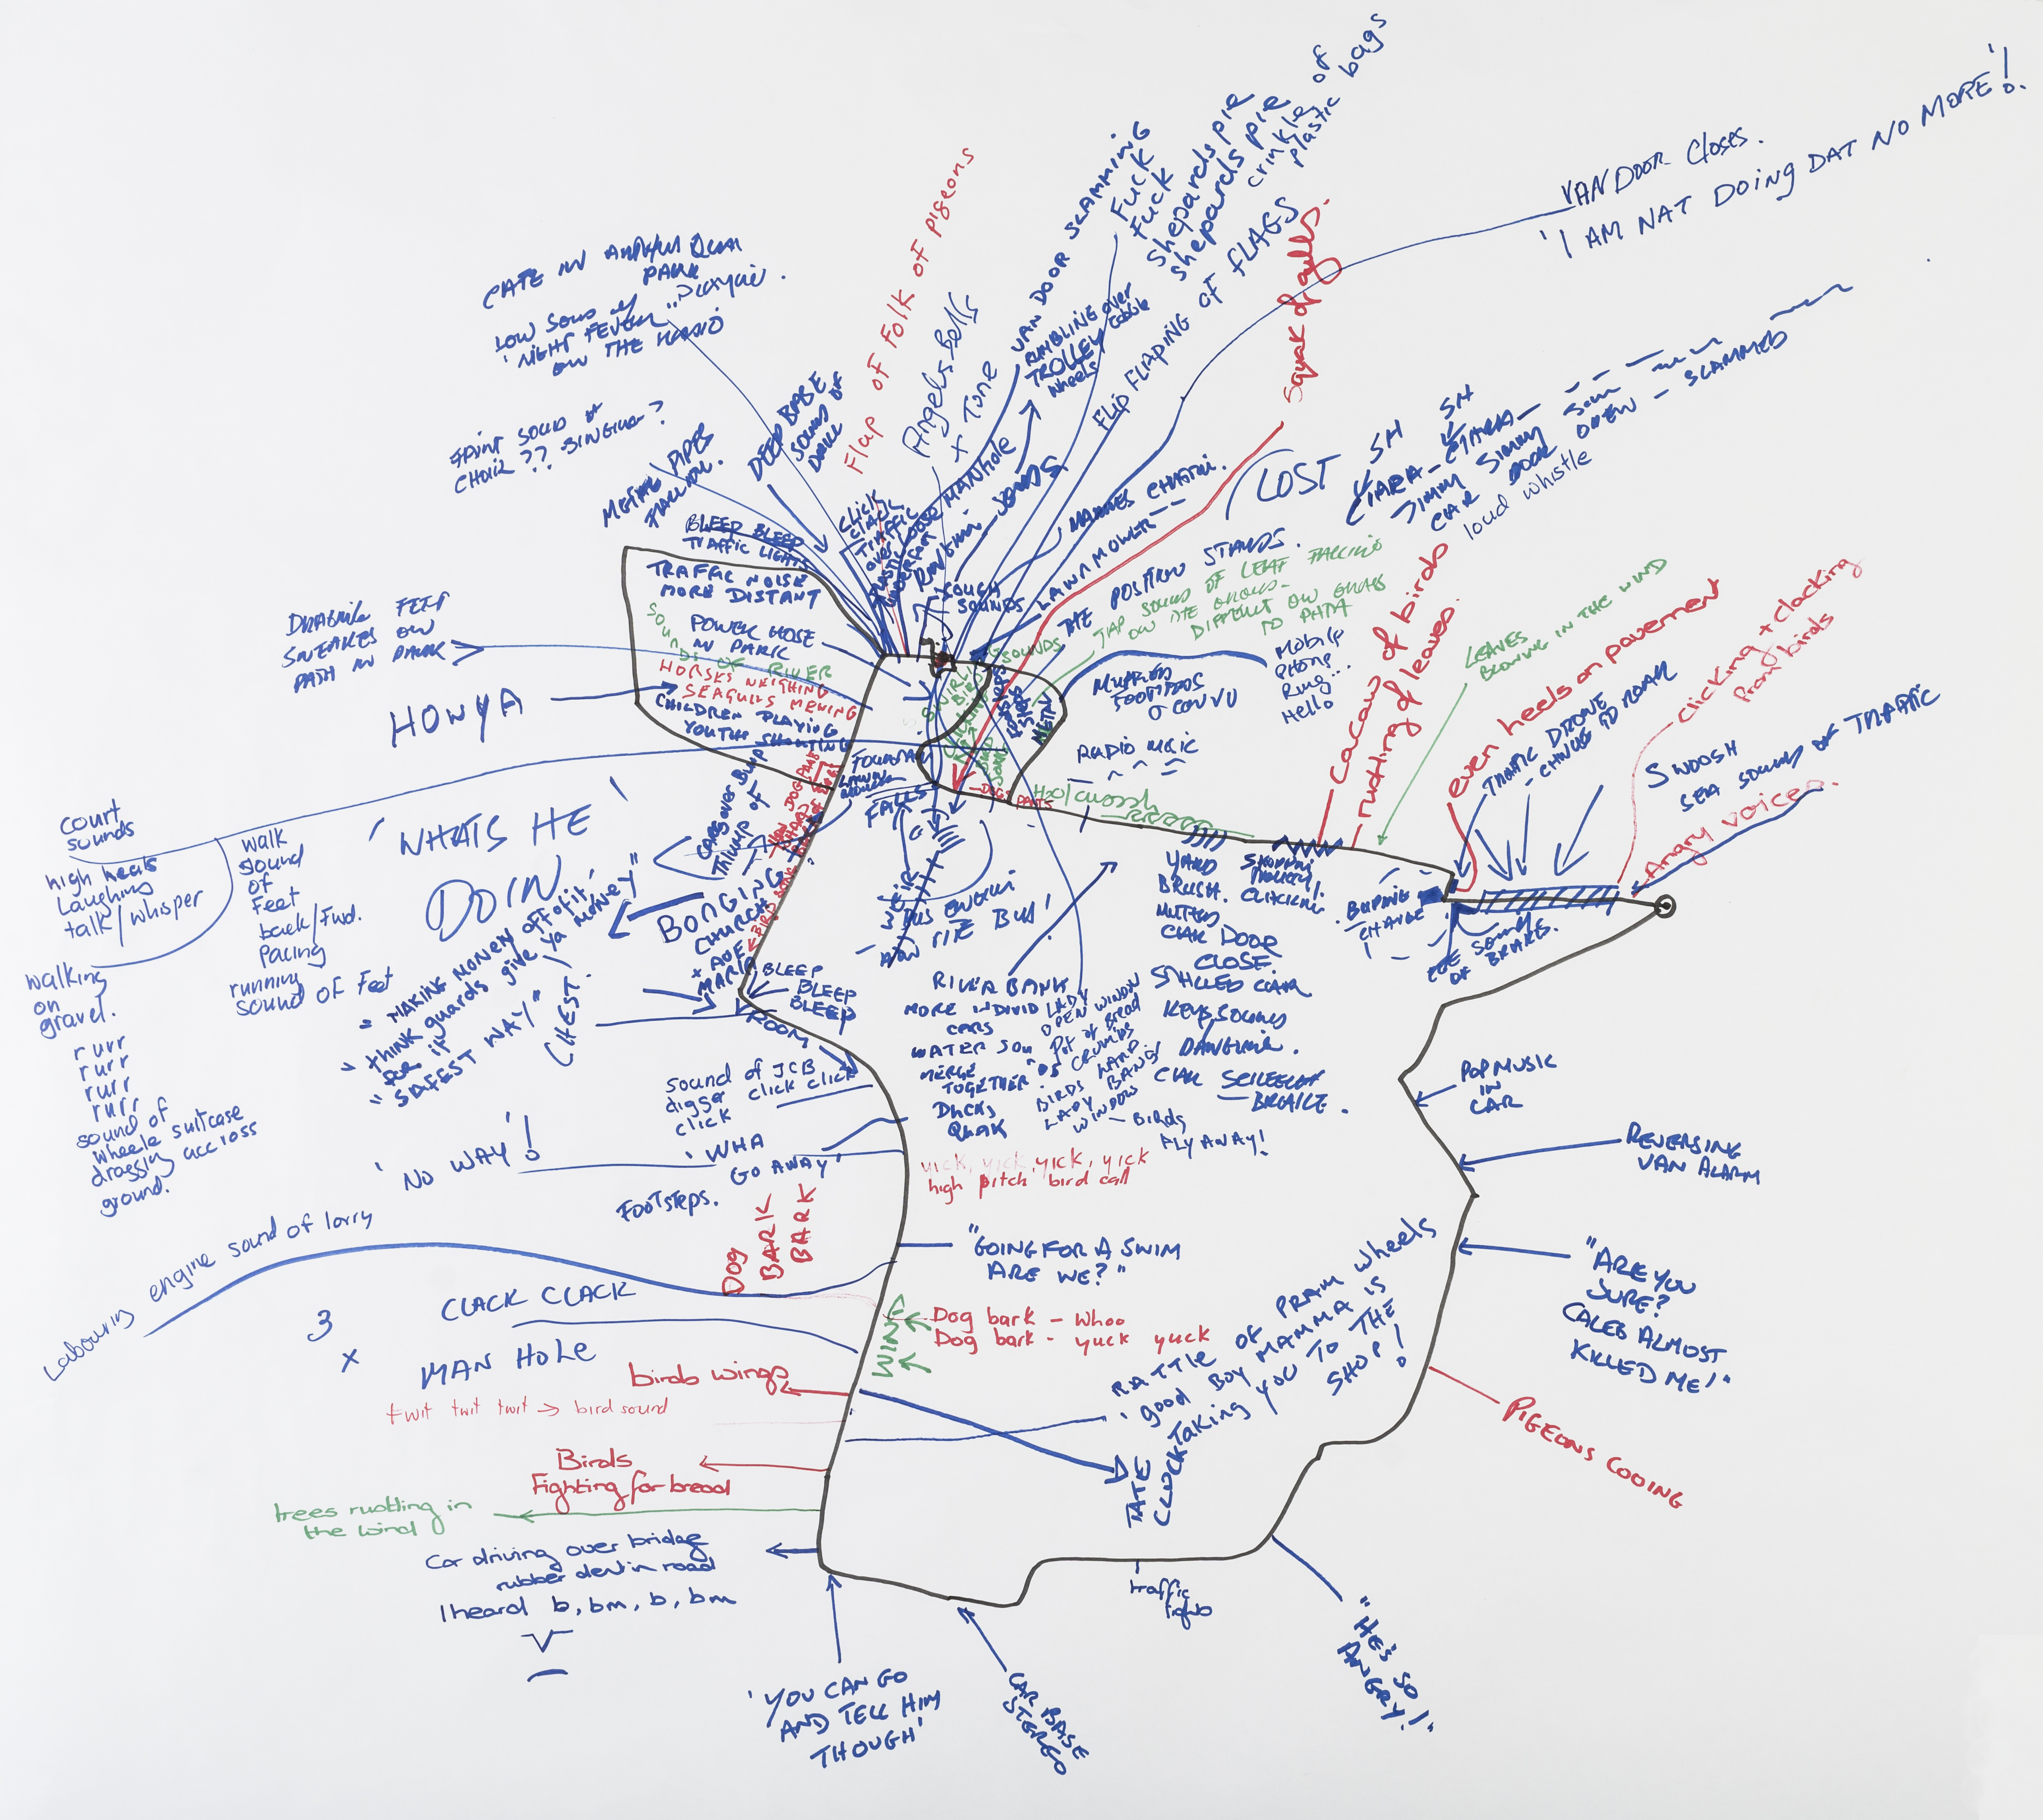 VAN DOOR CLOSES.
'I AM NAT DOING DAT NO MORE'!
CAFE IN
PARK
LOW SOUND OF
'NIGHT FEVER' PLAYING
ON THE RADIO
FAINT SOUND OF
CHOIR?? SINGING?
METAL PIPES
FALLING.
DEEP BASE
SOUND OF
DRILL
Flap of Folk of pigeons
Angels Bells
x Tone
VAN DOOR SLAMMING
Fuck
Fuck
Shepards pie
Shepards pie
crinkle of
plastic bags
RUMBLING over
TROLLEY cobble
wheels
FLIP FLAPING OF FLAGS
Squak of gulls.
CLICK
CLACK
TRAFFIC
OVER LOOSE MANHOLE
SOUNDS
LAWNMOWER --
LOST
THE POSITION STANDS.
SH SH
CIARA - CIARA -
JIMMY JIMMY
CAR DOOR OPEN - SLAMMED
loud whistle
TAP SOUND OF LEAF FALLING
ON THE GROUND -
DIFFERENT ON GRASS
TO PATH
BLEEP BLEEP
TRAFFIC LIGHTS
TRAFFIC NOISE
MORE DISTANT
POWER HOSE
IN PARK
SOUNDS OF RIVER
HORSES NEIGHING
SEAGULLS MEWING
CHILDREN PLAYING
YOUTHS SHOUTING
DRAGING FEET
SNEAKERS ON
PATH IN PARK
HOWYA
MUFFLED
FOOTSTEPS
MOBILE
PHONE
Ring..
Hello
RADIO MUSIC
Cacaw of birds
rustling of leaves.
LEAVES
BLOWING IN THE WIND
even heels on pavement
TRAFFIC DRONE
- CHANGE TO ROAR
clicking + clacking
from birds
SWOOSH
SEA SOUND OF TRAFFIC
Angry voices.
'WHATS HE
DOIN'
court
sounds
high heels
Laughing
talk/whisper
walk
sound
of
Feet
back/Fwd.
Pacing
running
sound of Feet
walking
on
gravel.
rurr
rurr
rurr
rurr
sound of
wheele suitcase
draggin accross
ground.
"MAKING MONEY OFF OF IT,
"think guards give ya money"
for it
"SAFEST WAY"
CHEST.
CARS over Bump
THUMP OF
BONGING
CHURCH
+ AVE
MARIA
BIRD SONG
BLEEP
BLEEP
BLEEP
VROOM
FALLS
WEIR
BUS ENGINE
H2O/cwossh
YARD
BRUSH.
MUFFLED
CAR DOOR
CLOSE.
STALLED CAR
KEYS SOUND
DANGLING.
CAR SCREECH
- BRAKE.
SHOPPING
TROLLEY.
CLACKING.
BUMPING
CHANGE
THE SOUND
OF BRAKES.
RIVER BANK
MORE INDIVID
CARS
WATER SOUN
MERGE
TOGETHER
DUCKS
QUAK
LADY
OPEN WINDOW
POT OF BREAD
CRUMBS
BIRDS LAND
LADY BANGS
WINDOW
- BIRDS
FLY AWAY!
sound of JCB
digger click click
click
'NO WAY'!
'WHA
GO AWAY'
FOOTSTEPS.
yick, yick, yick, yick
high pitch bird call
DOG
BARK
BARK
POP MUSIC
IN
CAR
REVERSING
VAN ALARM
Labouring engine sound of lorry
"GOING FOR A SWIM
ARE WE?"
"ARE YOU
SURE?
CALEB ALMOST
KILLED ME!"
3
x
CLACK CLACK
MAN HOLE
WIND
Dog bark - whoo
Dog bark - yuck yuck
RATTLE OF PRAM wheels
'good BOY MAMMA IS
TAKING YOU TO THE
SHOP!
birds wings
twit twit twit → bird sound
PIGEONS COOING
Birds
Fighting for bread
TATE
CLOCK
trees rustling in
the wind
Car driving over bridge
rubber dent in road
I heard b, bm, b, bm
traffic
lights
"HE'S SO
ANGRY!"
'YOU CAN GO
AND TELL HIM
THOUGH'
CAR BASE
STEREO